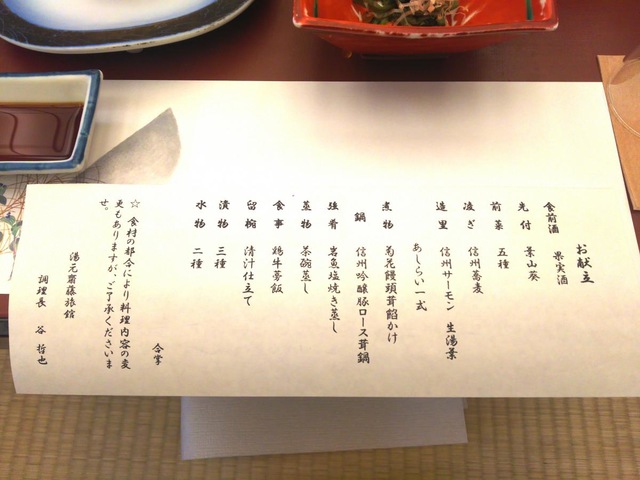 お献立
食前酒 果実酒
先付 葉山葵
前菜 五種
凌ぎ 信州蕎麦
造里 信州サーモン 生湯葉
あしらい一式
煮物 菊花饅頭茸餡かけ
鍋 信州吟醸豚ロース茸鍋
強肴 岩魚塩焼き蒸し
蒸物 茶碗蒸し
食事 鶏牛蒡飯
留椀 清汁仕立て
漬物 三種
水物 二種
合掌
☆ 食材の都合により料理内容の変
更もありますが、ご了承くださいま
せ。
湯元齋藤旅館
調理長 谷 哲也